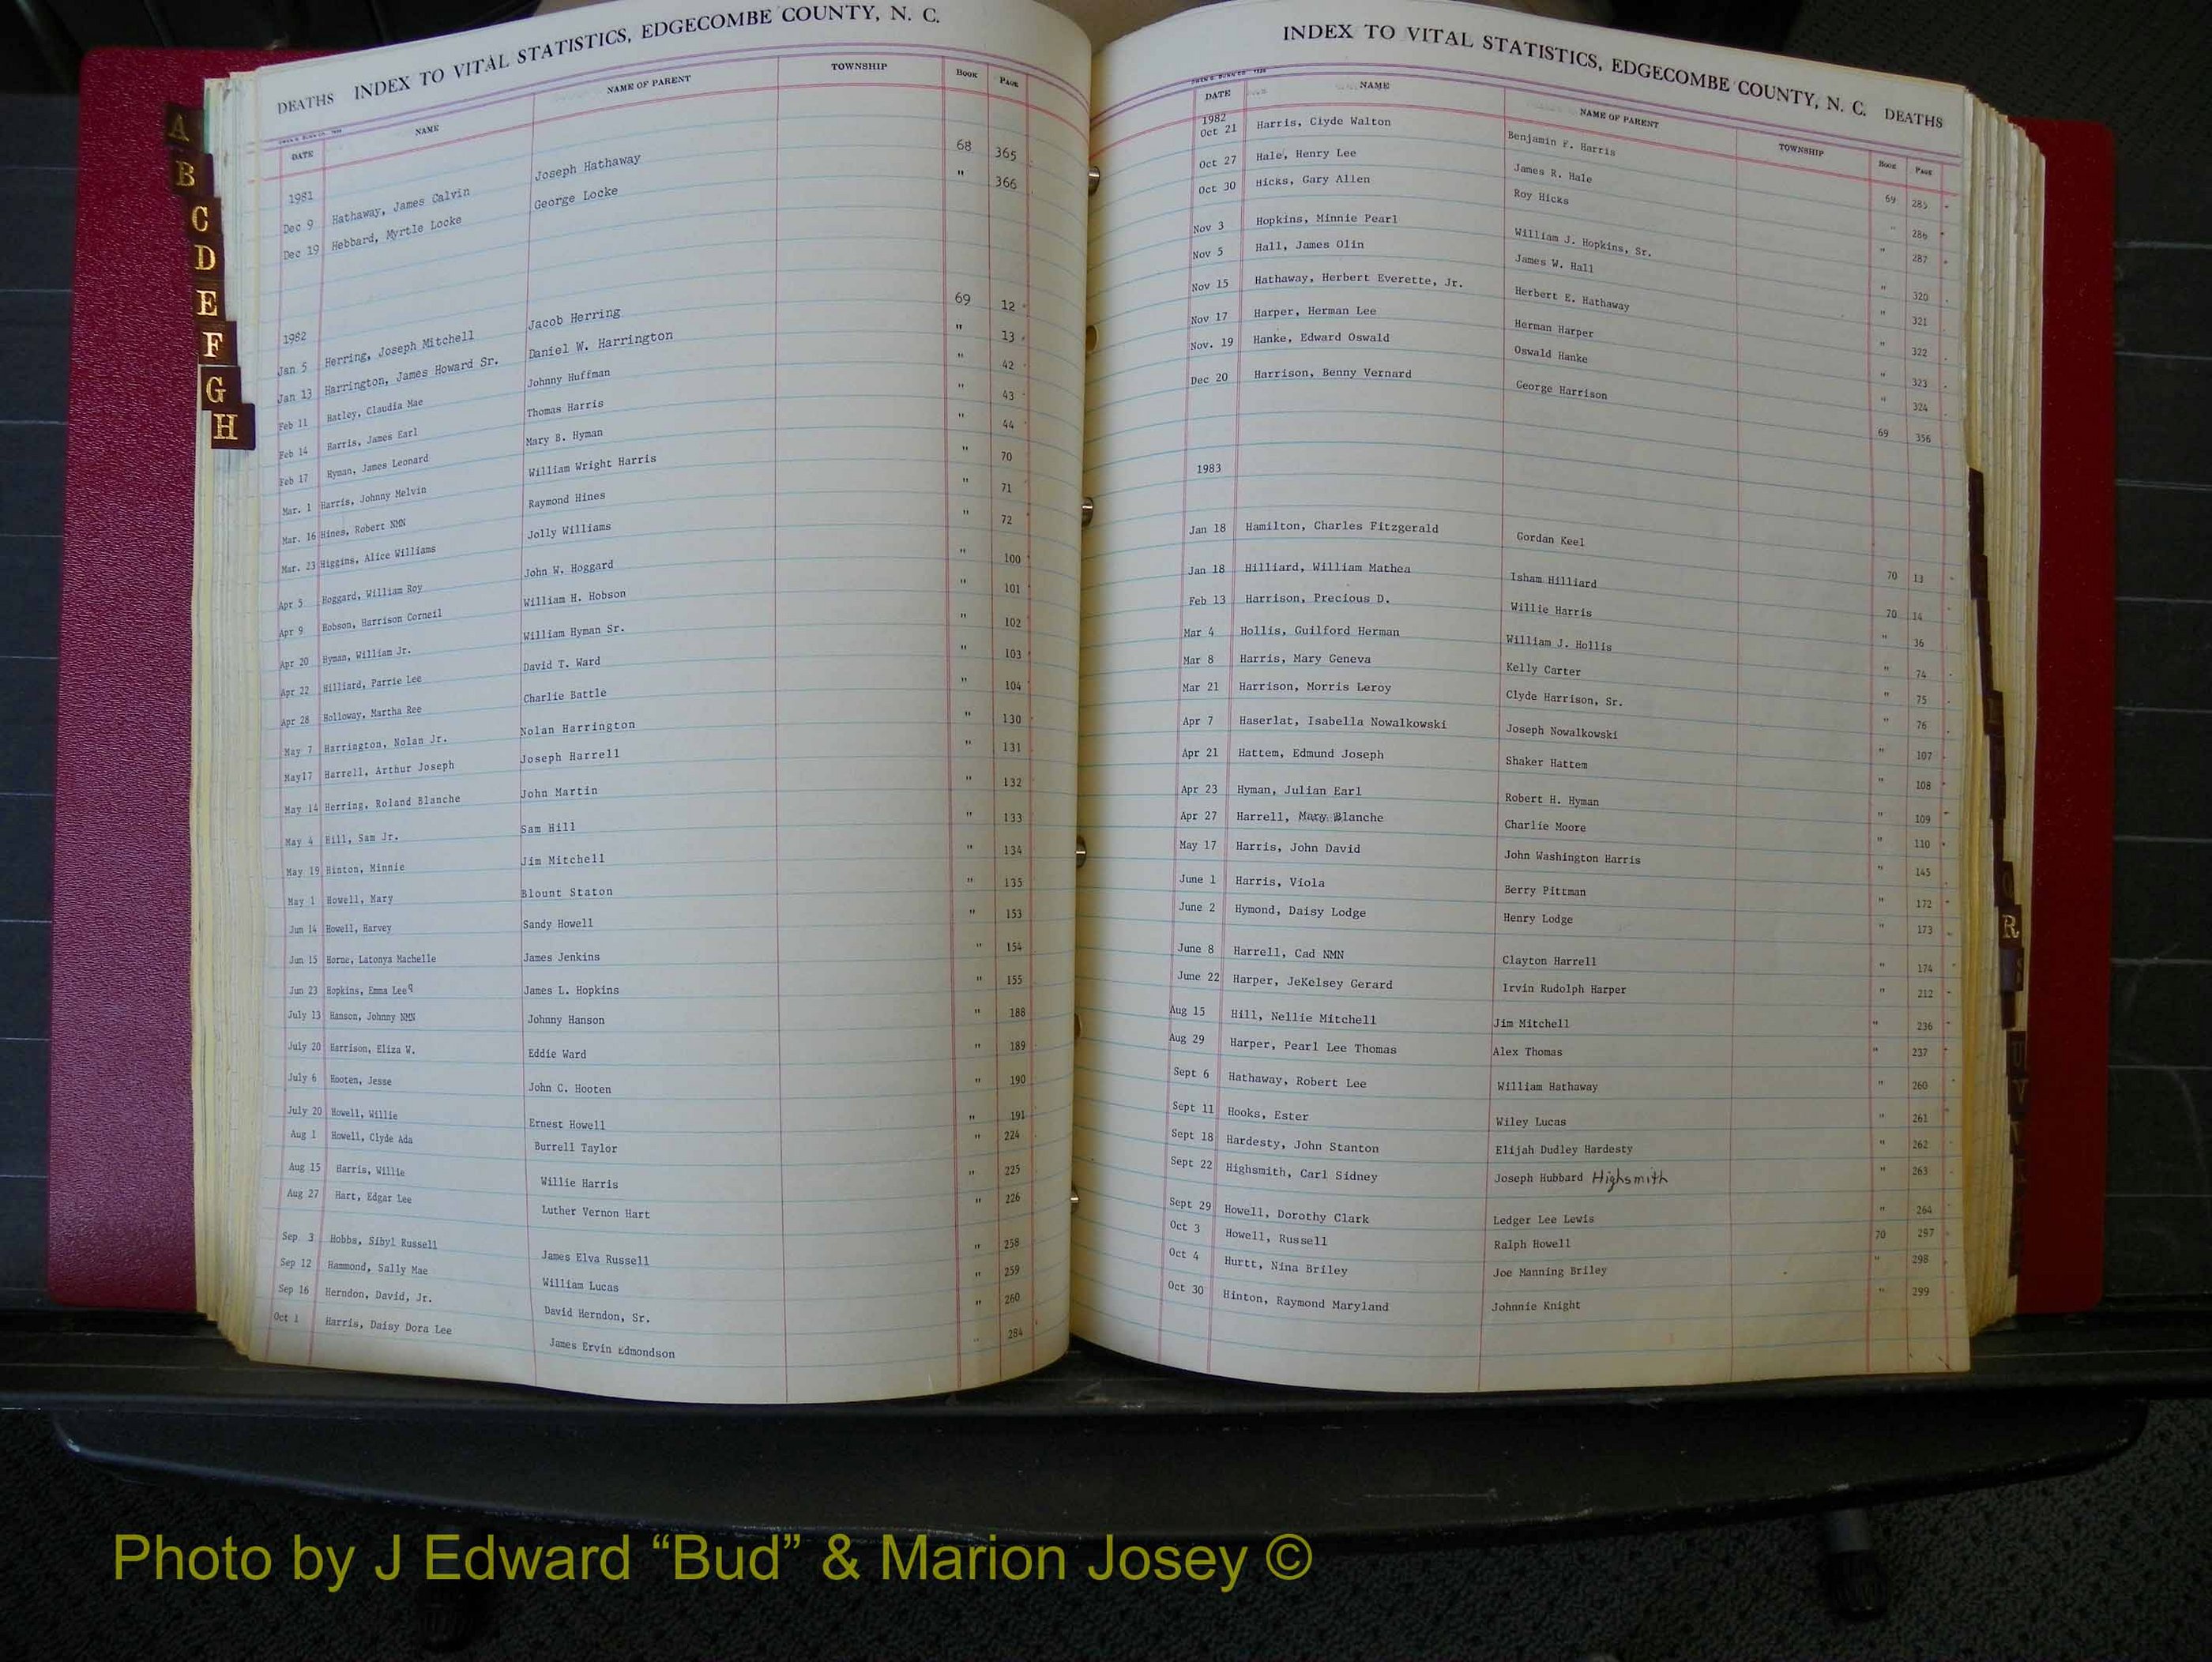 DEATHS INDEX TO VITAL STATISTICS, EDGECOMBE COUNTY, N. C.
DATE NAME NAME OF PARENT TOWNSHIP BOOK PAGE
1981
Dec 9 Hathaway, James Calvin Joseph Hathaway 68 365
Dec 19 Hebbard, Myrtle Locke George Locke " 366
1982
Jan 5 Herring, Joseph Mitchell Jacob Herring 69 12
Jan 13 Harrington, James Howard Sr. Daniel W. Harrington " 13
Feb 11 Hatley, Claudia Mae Johnny Huffman " 42
Feb 14 Harris, James Earl Thomas Harris " 43
Feb 17 Hyman, James Leonard Mary B. Hyman " 44
Mar. 1 Harris, Johnny Melvin William Wright Harris " 70
Mar. 16 Hines, Robert NMN Raymond Hines " 71
Mar. 23 Higgins, Alice Williams Jolly Williams " 72
Apr 5 Hoggard, William Roy John W. Hoggard " 100
Apr 9 Hobson, Harrison Corneil William H. Hobson " 101
Apr 20 Hyman, William Jr. William Hyman Sr. " 102
Apr 22 Hilliard, Parrie Lee David T. Ward " 103
Apr 28 Holloway, Martha Ree Charlie Battle " 104
May 7 Harrington, Nolan Jr. Nolan Harrington " 130
May17 Harrell, Arthur Joseph Joseph Harrell " 131
May 14 Herring, Roland Blanche John Martin " 132
May 4 Hill, Sam Jr. Sam Hill " 133
May 19 Hinton, Minnie Jim Mitchell " 134
May 1 Howell, Mary Blount Staton " 135
Jun 14 Howell, Harvey Sandy Howell " 153
Jun 15 Horne, Latonya Machelle James Jenkins " 154
Jun 23 Hopkins, Emma Lee James L. Hopkins " 155
July 13 Hanson, Johnny NMN Johnny Hanson " 188
July 20 Harrison, Eliza W. Eddie Ward " 189
July 6 Hooten, Jesse John C. Hooten " 190
July 20 Howell, Willie Ernest Howell " 191
Aug 1 Howell, Clyde Ada Burrell Taylor " 224
Aug 15 Harris, Willie Willie Harris " 225
Aug 27 Hart, Edgar Lee Luther Vernon Hart " 226
Sep 3 Hobbs, Sibyl Russell James Elva Russell " 258
Sep 12 Hammond, Sally Mae William Lucas " 259
Sep 16 Herndon, David, Jr. David Herndon, Sr. " 260
Oct 1 Harris, Daisy Dora Lee James Ervin Edmondson " 284
INDEX TO VITAL STATISTICS, EDGECOMBE COUNTY, N. C. DEATHS
DATE NAME NAME OF PARENT TOWNSHIP BOOK PAGE
1982
Oct 21 Harris, Clyde Walton Benjamin F. Harris 69 285
Oct 27 Hale, Henry Lee James R. Hale " 286
Oct 30 Hicks, Gary Allen Roy Hicks " 287
Nov 3 Hopkins, Minnie Pearl William J. Hopkins, Sr. " 320
Nov 5 Hall, James Olin James W. Hall " 321
Nov 15 Hathaway, Herbert Everette, Jr. Herbert E. Hathaway " 322
Nov 17 Harper, Herman Lee Herman Harper " 323
Nov. 19 Hanke, Edward Oswald Oswald Hanke " 324
Dec 20 Harrison, Benny Vernard George Harrison 69 356
1983
Jan 18 Hamilton, Charles Fitzgerald Gordan Keel 70 13
Jan 18 Hilliard, William Mathea Isham Hilliard 70 14
Feb 13 Harrison, Precious D. Willie Harris " 36
Mar 4 Hollis, Guilford Herman William J. Hollis " 74
Mar 8 Harris, Mary Geneva Kelly Carter " 75
Mar 21 Harrison, Morris Leroy Clyde Harrison, Sr. " 76
Apr 7 Haserlat, Isabella Nowalkowski Joseph Nowalkowski " 107
Apr 21 Hattem, Edmund Joseph Shaker Hattem " 108
Apr 23 Hyman, Julian Earl Robert H. Hyman " 109
Apr 27 Harrell, Mary Blanche Charlie Moore " 110
May 17 Harris, John David John Washington Harris " 145
June 1 Harris, Viola Berry Pittman " 172
June 2 Hymond, Daisy Lodge Henry Lodge " 173
June 8 Harrell, Cad NMN Clayton Harrell " 174
June 22 Harper, JeKelsey Gerard Irvin Rudolph Harper " 212
Aug 15 Hill, Nellie Mitchell Jim Mitchell " 236
Aug 29 Harper, Pearl Lee Thomas Alex Thomas " 237
Sept 6 Hathaway, Robert Lee William Hathaway " 260
Sept 11 Hooks, Ester Wiley Lucas " 261
Sept 18 Hardesty, John Stanton Elijah Dudley Hardesty " 262
Sept 22 Highsmith, Carl Sidney Joseph Hubbard Highsmith " 263
Sept 29 Howell, Dorothy Clark Ledger Lee Lewis " 264
Oct 3 Howell, Russell Ralph Howell 70 297
Oct 4 Hurtt, Nina Briley Joe Manning Briley " 298
Oct 30 Hinton, Raymond Maryland Johnnie Knight " 299
A
B
C
D
E
F
G
H
R
Photo by J Edward “Bud” & Marion Josey ©